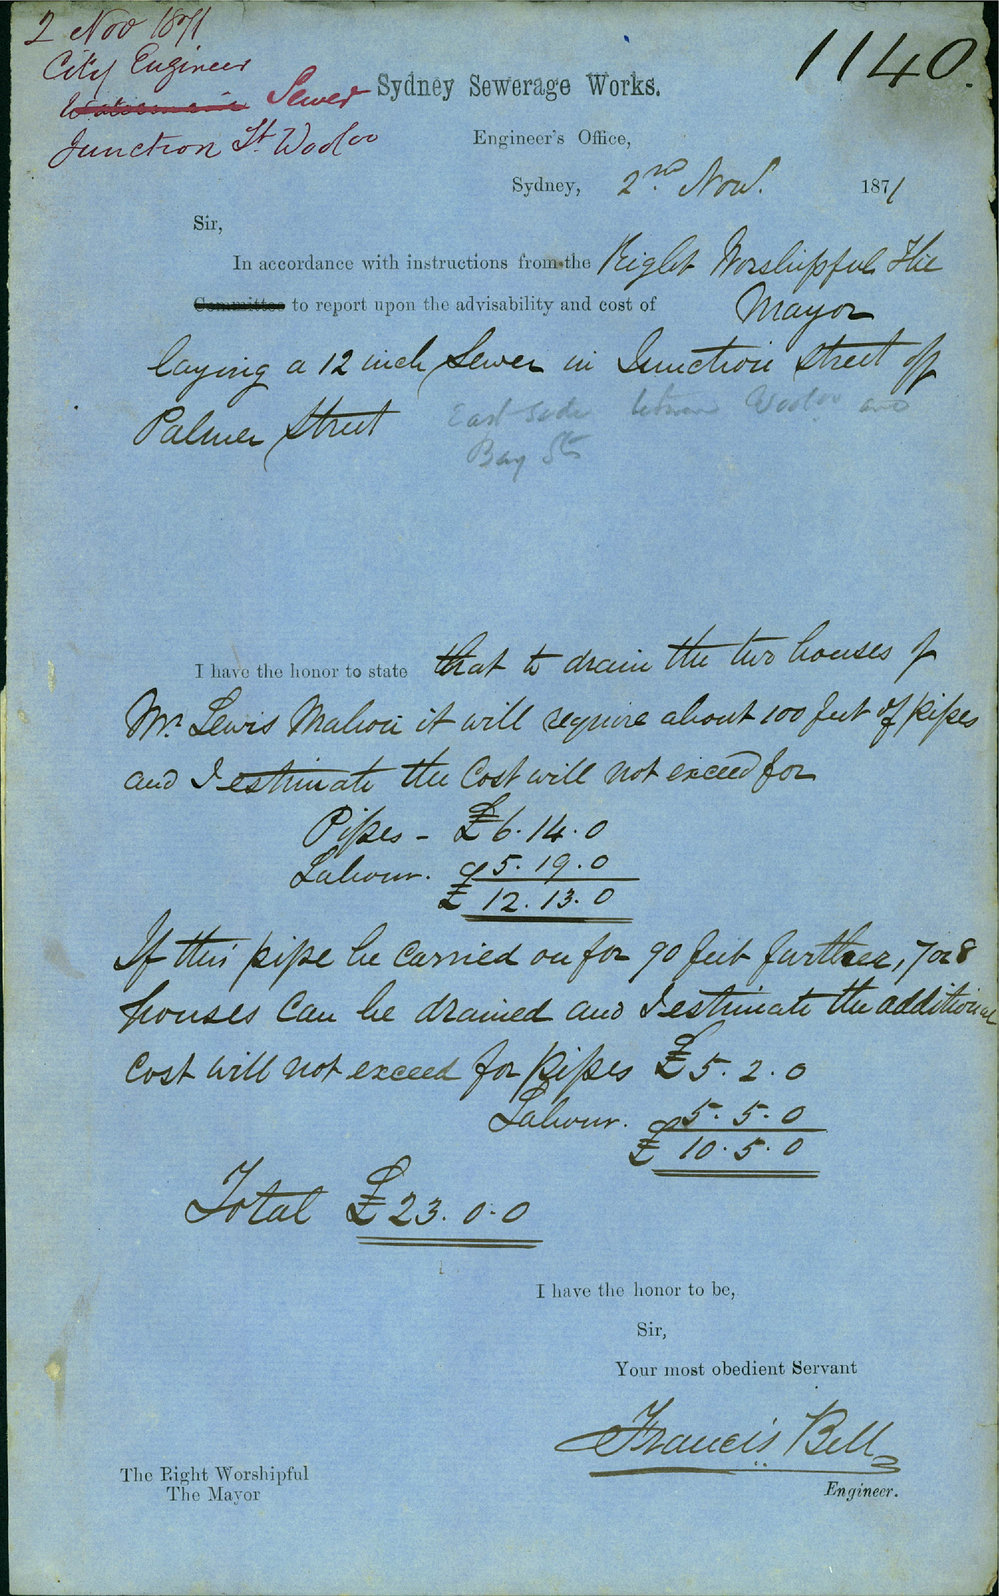 2 Nov 1871
City Engineer
Watermain Sewer
Junction St. Wooloo
1140.
Sydney Sewerage Works.
Engineer's Office,
Sydney, 2nd Nov. 1871
Sir,
In accordance with instructions from the Right Worshipful The
Committee to report upon the advisability and cost of Mayor
laying a 12 inch Sewer in Junction Street off
Palmer Street East side between Wooloo and
Bay Sts
I have the honor to state that to drain the two houses of
Mr. Lewis Mahon it will require about 100 feet of pipes
and I estimate the Cost will not exceed for
Pipes - £6.14.0
Labour. 5.19.0
£ 12.13.0
If this pipe be carried on for 90 feet further, 7 or 8
houses can be drained and I estimate the additional
cost will not exceed for pipes £5.2.0
Labour. 5.5.0
£ 10.5.0
Total £23.0.0
I have the honor to be,
Sir,
Your most obedient Servant
Francis Bell
Engineer.
The Right Worshipful
The Mayor